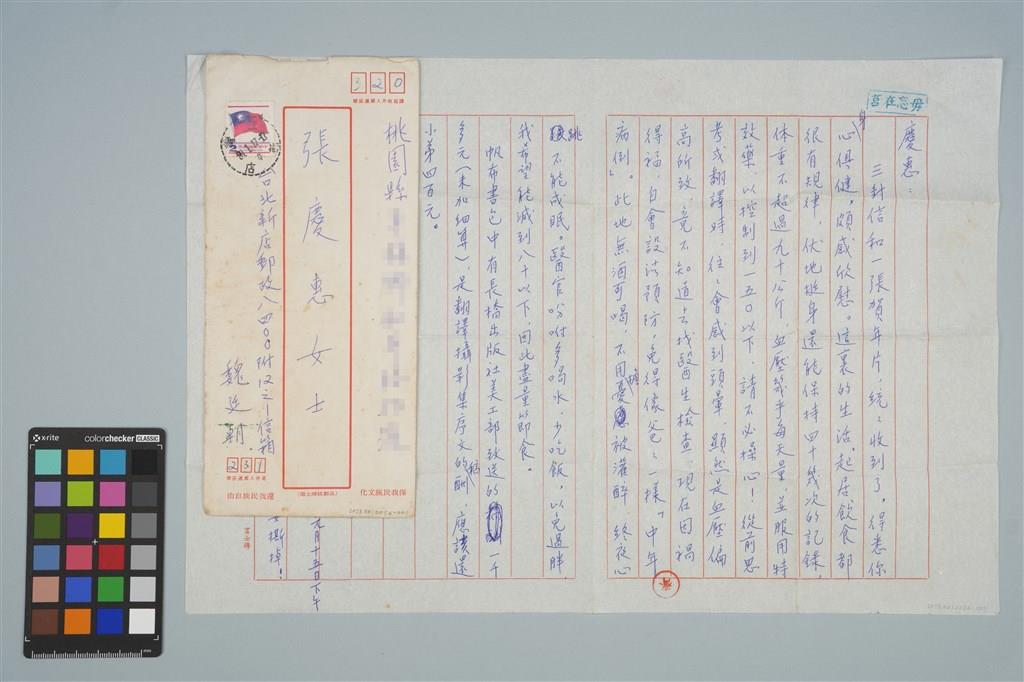 毋忘在莒
慶惠：
三封信和一張賀年片，統統收到了。得悉你
身心俱健，頗感欣慰。這裏的生活，起居飲食都
很有規律，伏地挺身還能保持四十幾次的記錄，
体重不超過九十公斤，血壓幾乎每天量，並服用特
效藥，以控制到一五〇以下，請不必操心！從前思
考或翻譯時，往往會感到頭暈，顯然是血壓偏
高所致，竟不知道去找醫生檢查。現在因禍
得福，自會設法預防，免得像爸爸一樣「中年
病倒」。此地無酒可喝，不用擔憂被灌醉，終夜心
跳不能成眠。醫官吩咐多喝水，少吃飯，以免過胖，
我希望能減到八十以下，因此盡量節食。
帆布書包中有長橋出版社美工部致送的一千
多元（未加細算），是翻譯攝影集序文的稿酬，應該還
小弟四百元。
元月十五日下午
撕掉！
320
桃園縣
張慶惠女士
台北新店郵政八四〇〇附
信箱
魏廷朝
231
保我民族文化
還我民族自由
x-rite
colorchecker CLASSIC
mm